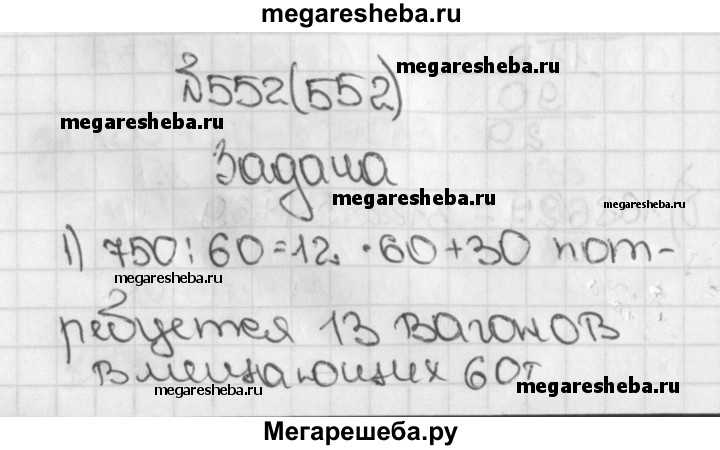 megaresheba.ru
№552(552) megaresheba.ru
megaresheba.ru
Задача
megaresheba.ru
1) 750:60=12. ·60+30 пот-
megaresheba.ru
ребуется 13 вагонов
вмещающих 60т
megaresheba.ru
Мегарешеба.ру